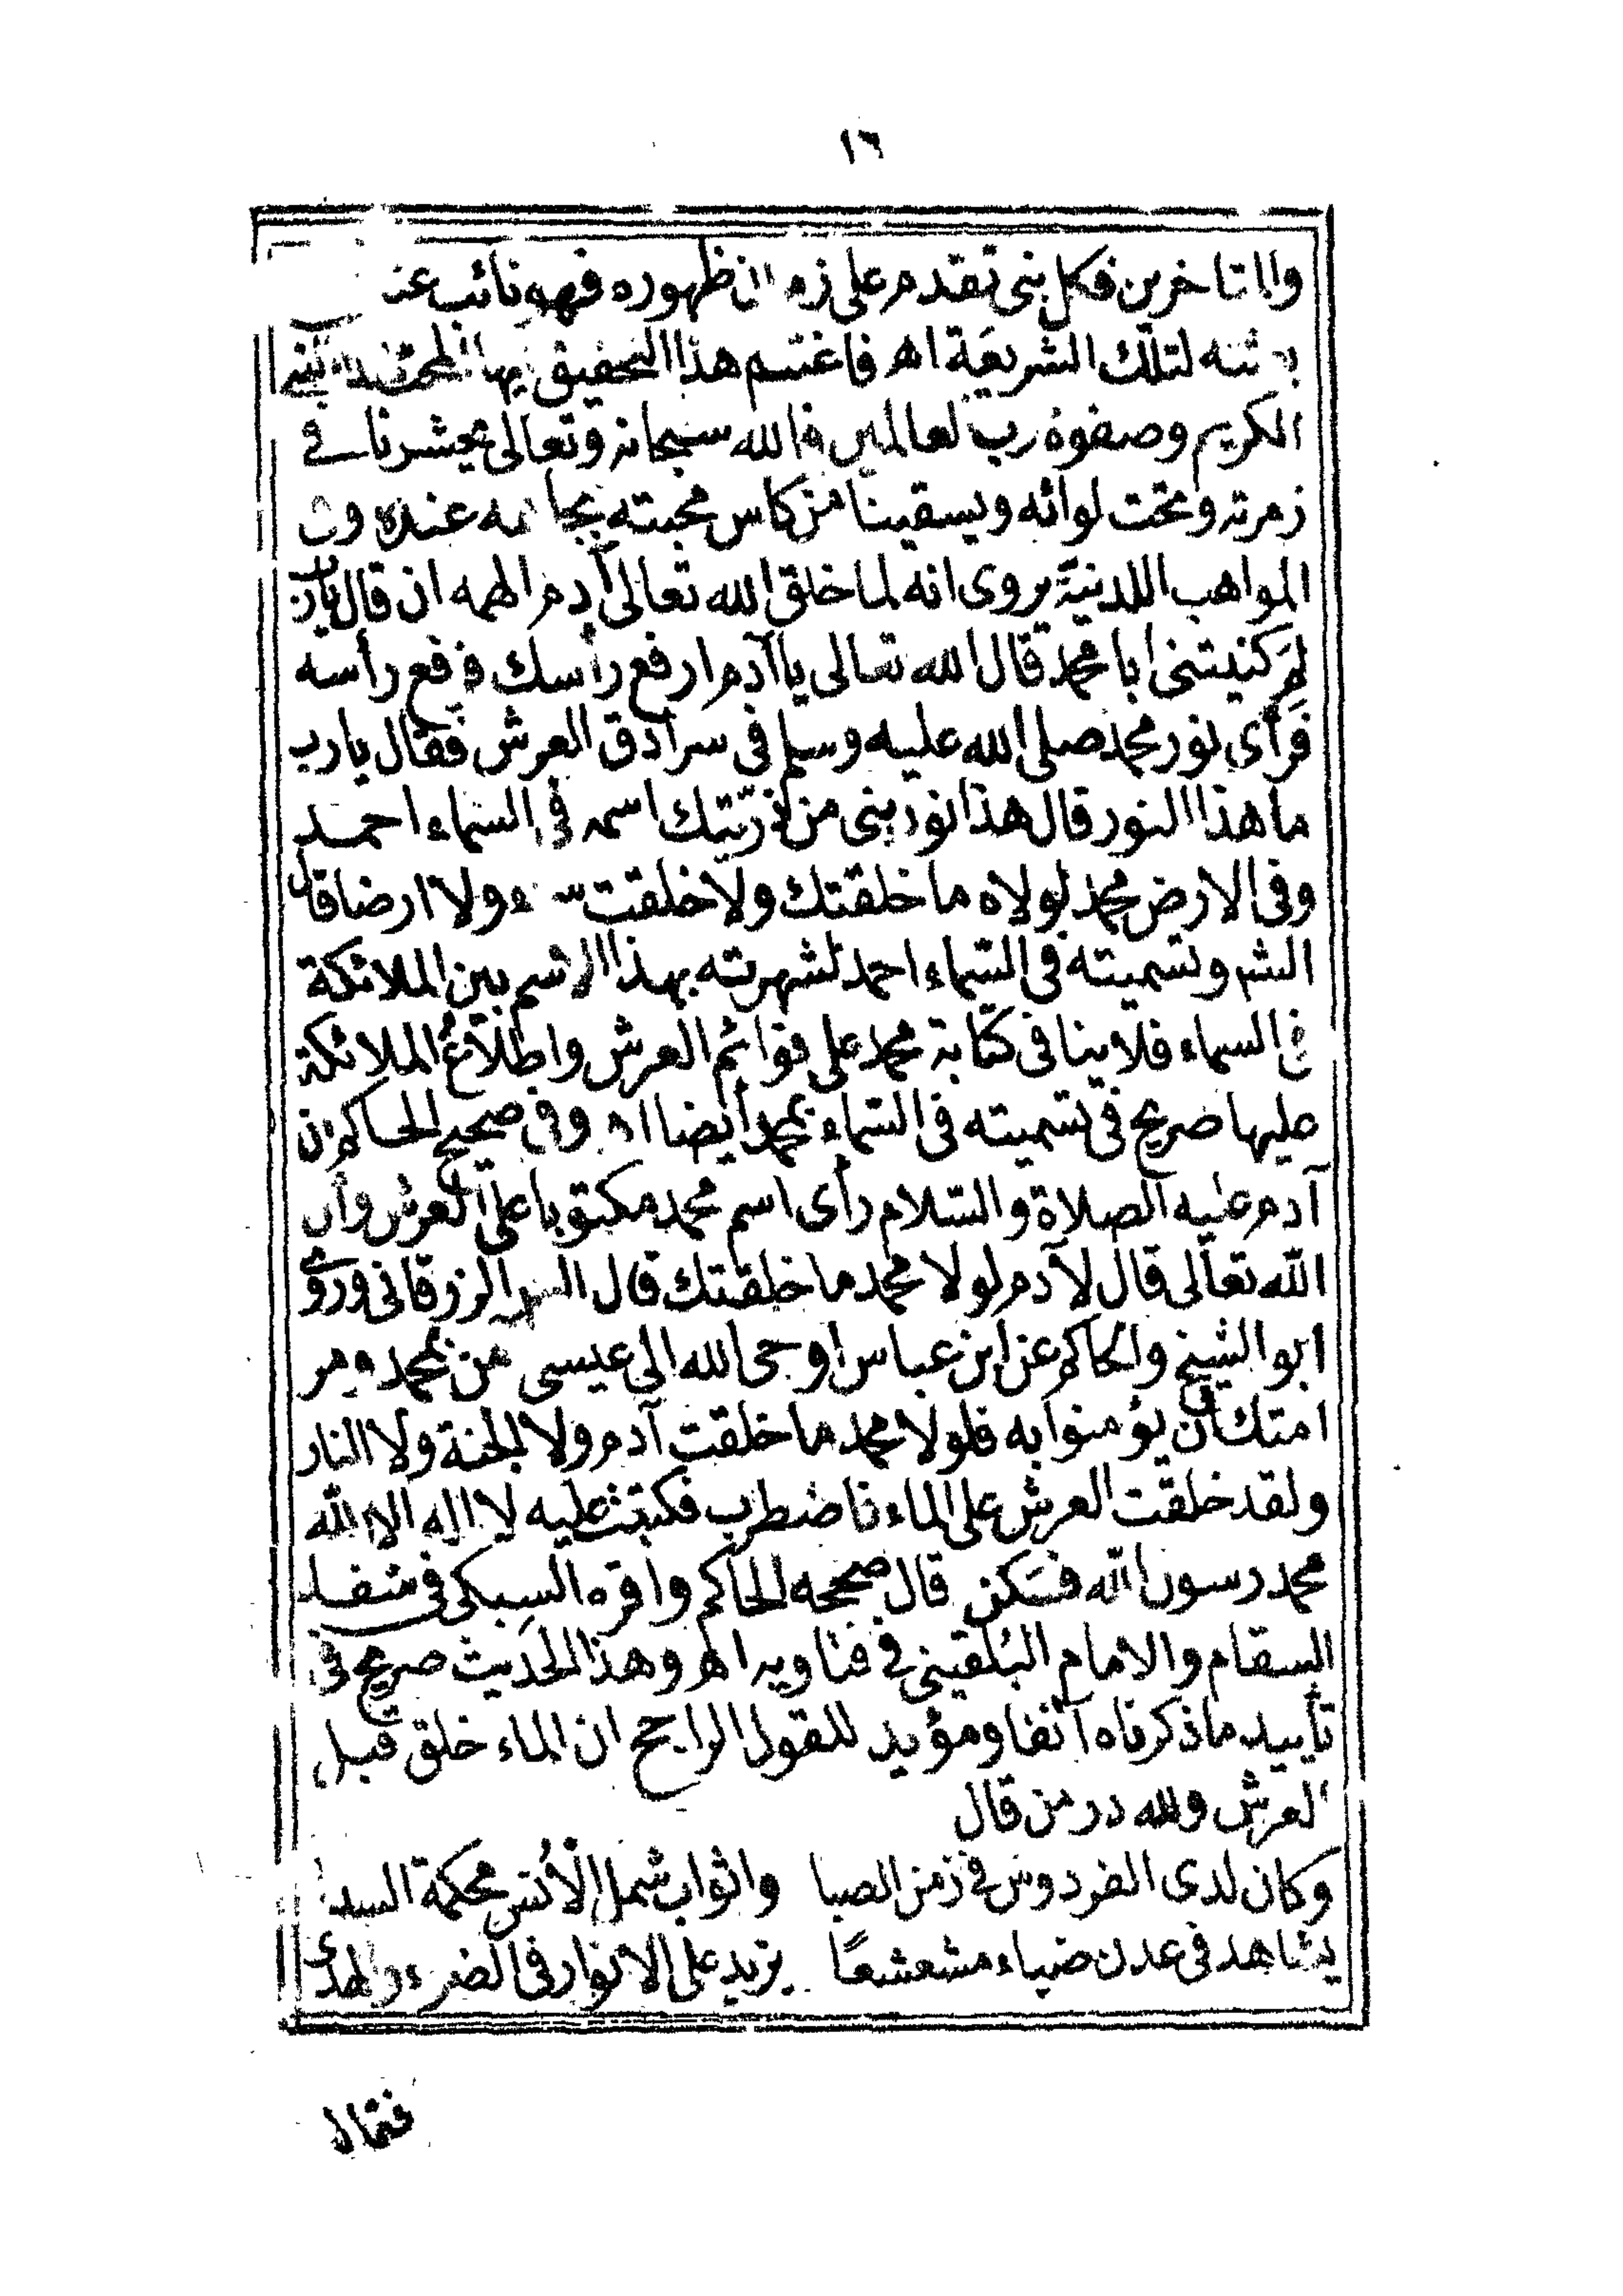 ١٦
والمتاخرين فكل نبى تقدم على زمان ظهوره فهو نائب عنه
لتلك الشريعة اهـ فاغتنم هذا التحقيق
الكريم وصفوة رب العالمين فالله سبحانه وتعالى يحشرنا فى
زمرته وتحت لوائه ويسقينا من كاس محبته بجاهه عنده وفى
المواهب اللدنية يروى انه لما خلق الله تعالى آدم الهمه ان قال يارب
لم كنيتنى ابا محمد قال الله تعالى ياآدم ارفع رأسك فرفع رأسه
فرأى نور محمد صلى الله عليه وسلم فى سرادق العرش فقال يارب
ما هذا النور قال هذا نور نبى من ذريّتك اسمه فى السماء احمد
وفى الارض محمد لولاه ما خلقتك ولا خلقت سماء ولا ارضا قال
الشر وتسميته فى السّماء احمد لشهرته بهذا الاسم بين الملائكة
فى السماء فلا ينافى كتابة محمد على قوائم العرش واطلاع الملائكة
عليها صريح فى تسميته فى السّماء بمحمد أيضا اهـ وفى صحيح الحاكم ان
آدم عليه الصلاة والسّلام رأى اسم محمد مكتوبا على العرش وأن
الله تعالى قال لآدم لولا محمد ما خلقتك قال الزرقانى وروى
ابو الشيخ والحاكم عن ابن عباس اوحى الله الى عيسى آمن بمحمد ومر
امتك أن يؤمنوا به فلولا محمد ما خلقت آدم ولا الجنة ولا النار
ولقد خلقت العرش على الماء فاضطرب فكتبت عليه لا اله الا الله
محمد رسول الله فسكن قال صححه الحاكم واقره السبكى فى شفاء
السقام والامام البُلقينى فى فتاويه اهـ وهذا الحديث صريح فى
تأييد ما ذكرناه آنفا ومؤيد للقول الراجح ان الماء خلق قبل
العرش ولله در من قال
وكان لدى الفردوس فى زمن الصبا واثواب شمل الأنس محكمة السدى
يشاهد فى عدن ضياء مشعشعًا يزيد على الانوار فى الضوء والهدى
فقال